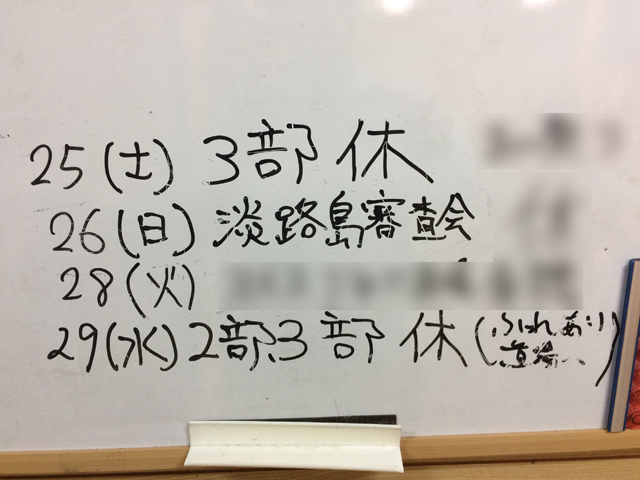 25(土) 3部 休
26(日) 淡路島審査会
28(火)
29(水) 2部、3部 休 (ふれあい
道場へ)